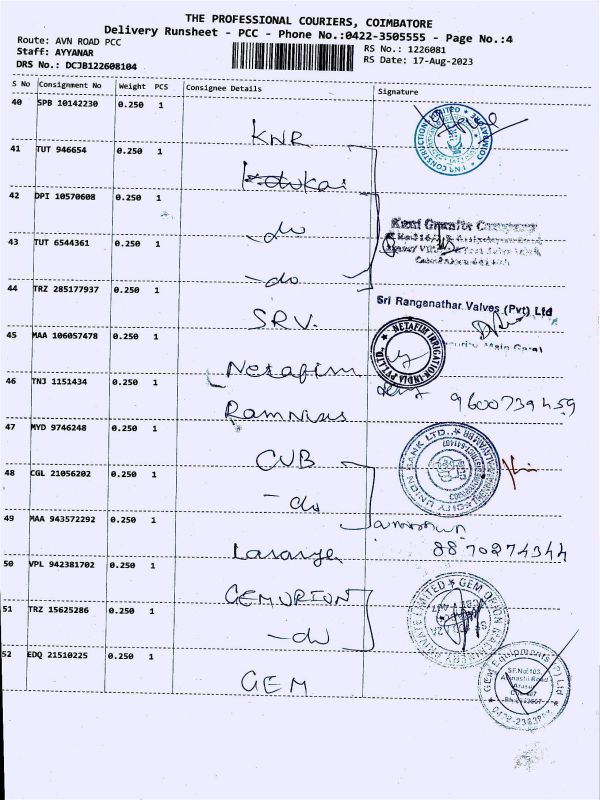 THE PROFESSIONAL COURIERS, COIMBATORE
Delivery Runsheet - PCC - Phone No.:0422-3505555 - Page No.:4
Route: AVN ROAD PCC
RS No.: 1226081
Staff: AYYANAR
RS Date: 17-Aug-2023
DRS No.: DCJB122608104
S No Consignment No Weight PCS Consignee Details Signature
40 SPB 10142230 0.250 1
KNR
41 TUT 946654 0.250 1
42 DPI 10570608 0.250 1
do
Kani Granite Company
43 TUT 6544361 0.250 1
do
44 TRZ 285177937 0.250 1
Sri Rangenathar Valves (Pvt) Ltd
SRV.
45 MAA 106057478 0.250 1
NETAFIM IRRIGATION INDIA PVT LTD.
Netafim
46 TNJ 1151434 0.250 1
9600739459
47 MYD 9746248 0.250 1
CITY UNION BANK LTD.,
CUB
48 CGL 21056202 0.250 1
- do
49 MAA 943572292 0.250 1
8870274344
50 VPL 942381702 0.250 1
51 TRZ 15625286 0.250 1
- do
52 EDQ 21510225 0.250 1
GEM Equipments (P) Ltd
GEM